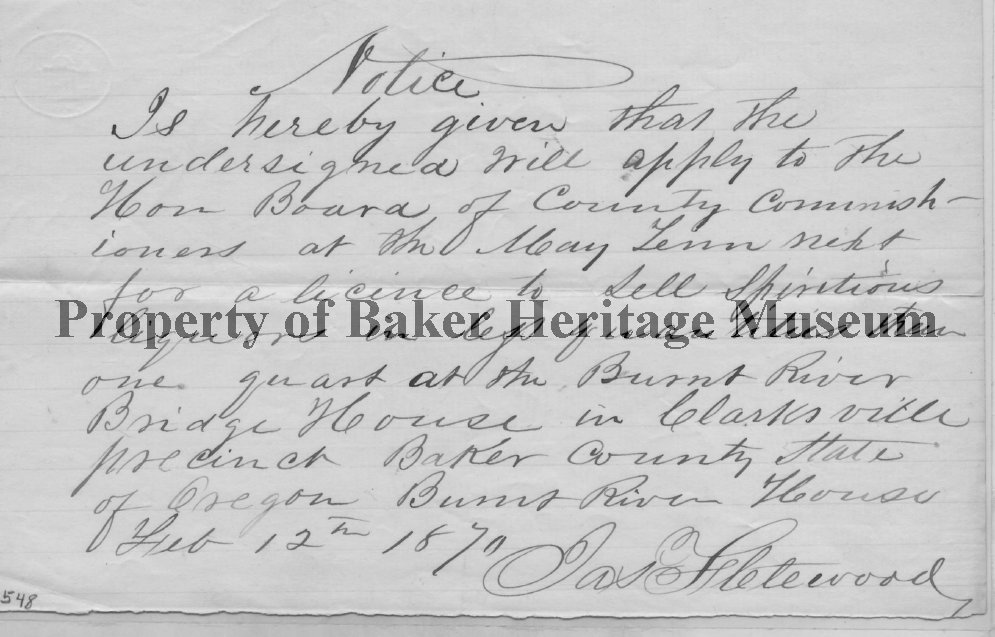 Notice
Is hereby given that the
undersigned will apply to the
Hon Board of County Commish-
ioners at the May Term next
for a licince to sell Spiritious
Property of Baker Heritage Museum
liquors in less than
one quart at the Burnt River
Bridge House in Clarksville
precinct Baker County State
of Oregon Burnt River House
Feb 12th 1870
Jas Fletewood
548